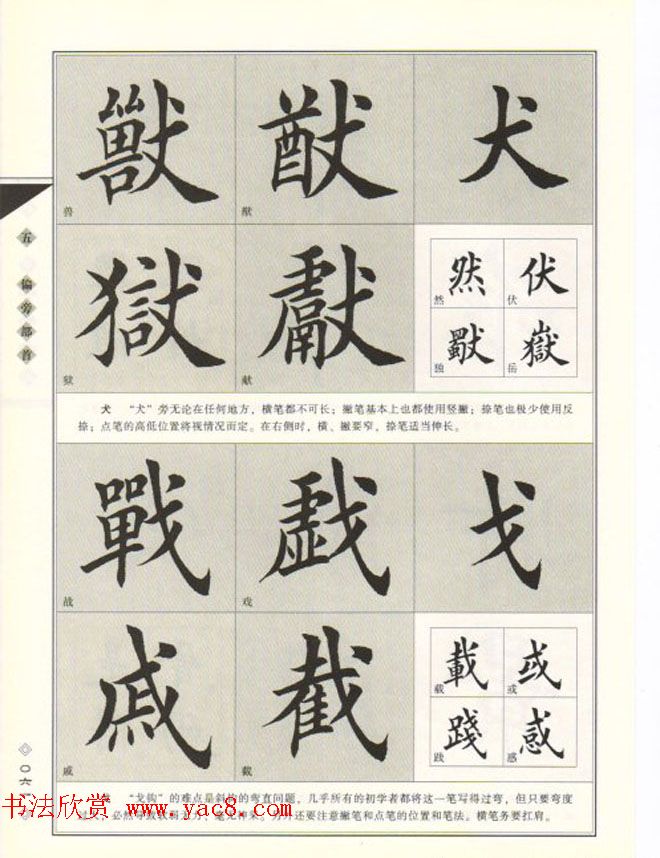 獸 猷 犬
兽 猷
獄 獻 然 伏
狱 献 然 伏
獨 嶽
独 岳
犬 “犬”旁无论在任何地方，横笔都不可长；撇笔基本上也都使用竖撇；捺笔也极少使用反
捺；点笔的高低位置将视情况而定。在右侧时，横、撇要窄，捺笔适当伸长。
戰 戲 戈
战 戏
戚 截 載 或
戚 截 载 或
踐 惑
践 惑
“戈钩”的难点是斜钩的弯直问题，几乎所有的初学者都将这一笔写得过弯，但只要弯度
还要注意撇笔和点笔的位置和笔法。横笔务要扛肩。
五
偏旁部首
书法欣赏 www.yac8.com